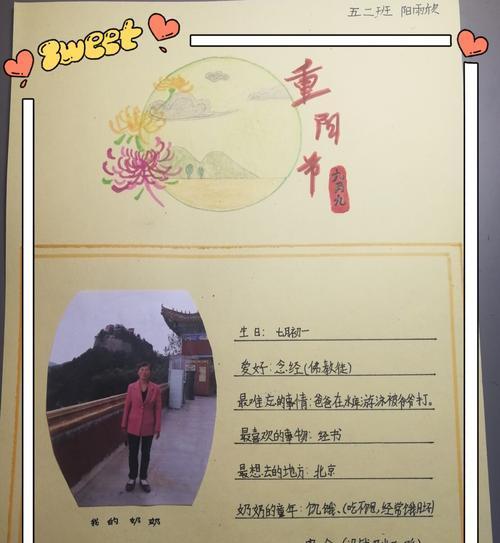 五二班 阳雨欣
sweet
重阳节
九月九
生日：七月初一
爱好：念经（佛教徒）
最难忘的事情：爸爸在水库游泳被爷爷打。
最喜欢的事物：经书
最想去的地方：北京
奶奶的童年：饥饿、（吃不饱，经常饿肚
我的奶奶